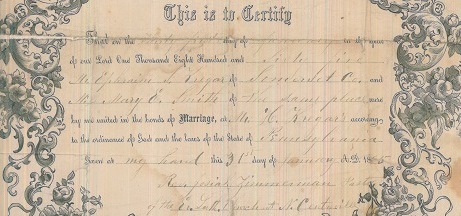 This is to Certify
That on the day of in the year
of our Lord One Thousand Eight Hundred and Sixty five
Mr Ephraim of Somerset Co.
and Ms. Mary E. Smith of the same place were
by me united in the bonds of Marriage, at Mr H. according
to the ordinance of God and the laws of the State of Pennsylvania
Given at my hand this 31st day of January A.D. 1865
Rev Zimmerman Pastor
of the Ev. Luth. Church at N. Centreville